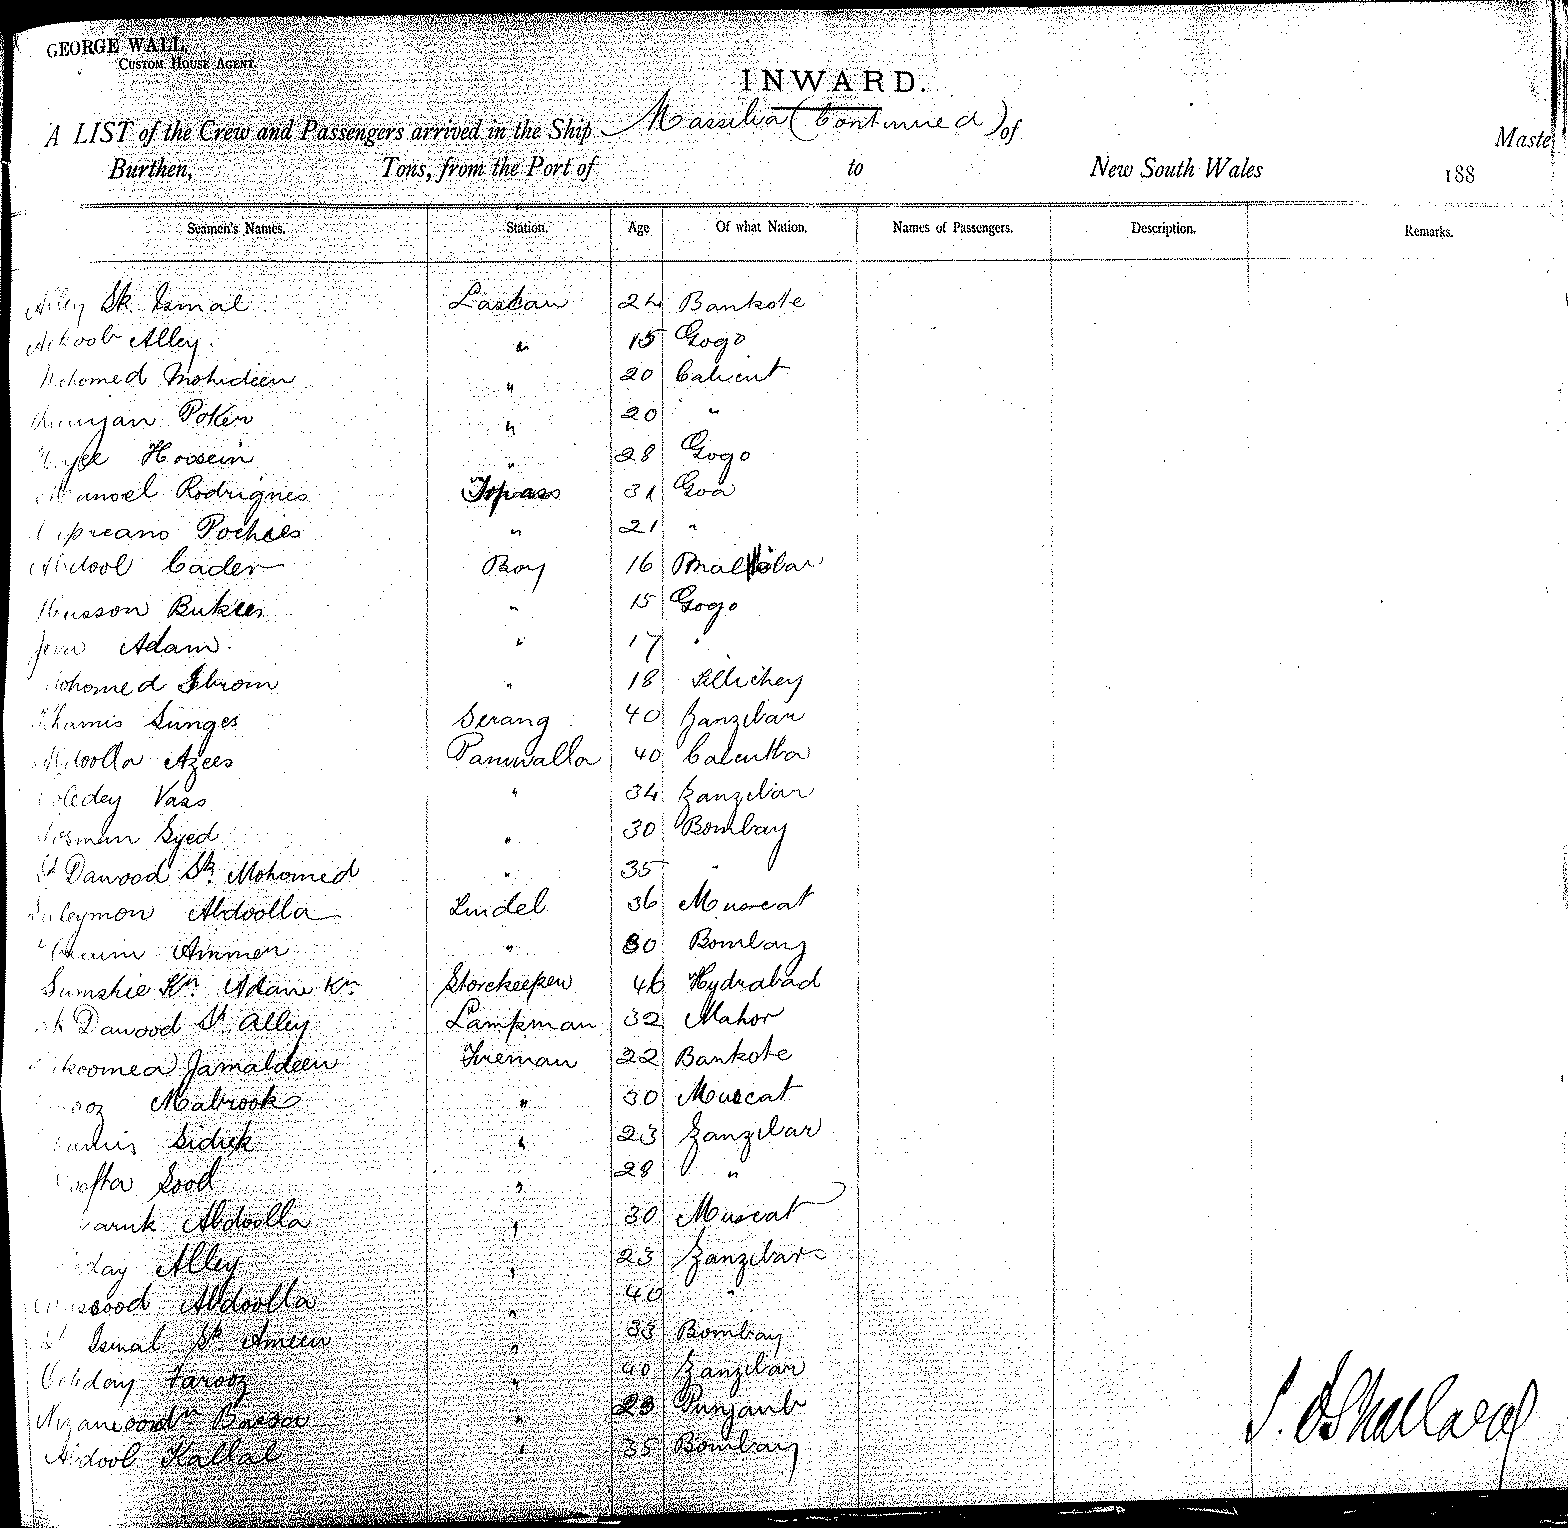 GEORGE WALL,
CUSTOM HOUSE AGENT.
INWARD.
A LIST of the Crew and Passengers arrived in the Ship Massilia (Continued) of Maste
Burthen, Tons, from the Port of to New South Wales 188
Seamen's Names. Station. Age Of what Nation. Names of Passengers. Description. Remarks.
Alley Sk Ismal Lascar 24 Bankote
Alley " 15 Gogo
Mahomed Mohideen " 20 Calicut
Poker " 20 "
Hossein " 28 Gogo
Manoel Rodrigues Topass 31 Goa
21 "
Abdool Cader Boy 16 Malabar
Husson " 15 Gogo
Adam " 17 "
Mohomed Ibrom " 18
Khamis Sunges Serang 40 Zanzibar
Abdoolla Azees Paniwalla 40 Calcutta
Vass " 34 Zanzibar
Syed " 30 Bombay
Sk Dawood Sk Mohomed " 35 "
Suleymon Abdoolla Lindel 36 Muscat
Ammer " 30 Bombay
Sumshie Kn Adam Kn Storekeeper 46 Hydrabad
Sk Dawood Sk Alley Lampman 32 Mahor
Jamaldeen Fireman 22 Bankote
Mabrook " 30 Muscat
Sidick " 23 Zanzibar
Sood " 28 "
Abdoolla " 30 Muscat
Alley " 23 Zanzibar
Abdoolla " 40 "
Sk Ismal Sk Ameen " 33 Bombay
Farooz " 40 Zanzibar
" 23 Punjaub
Abdool Kallal " 35 Bombay